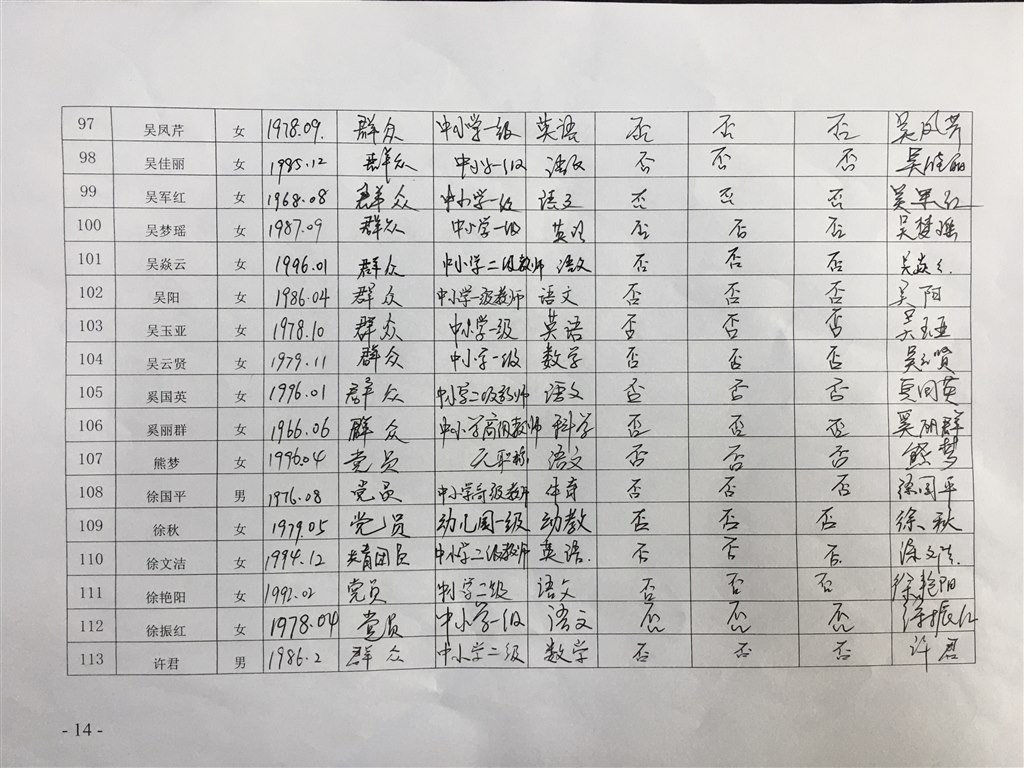 97 吴凤芹 女 1978.09. 群众 中小学一级 英语 否 否 否 吴凤芹
98 吴佳丽 女 1985.12 群众 中小学一级 语文 否 否 否 吴佳丽
99 吴军红 女 1968.08 群众 中小学一级 语文 否 否 否 吴军红
100 吴梦瑶 女 1987.09 群众 中小学一级 英语 否 否 否 吴梦瑶
101 吴焱云 女 1996.01 群众 中小学二级教师 语文 否 否 否 吴焱云
102 吴阳 女 1986.04 群众 中小学一级教师 语文 否 否 否 吴阳
103 吴玉亚 女 1978.10 群众 中小学一级 英语 否 否 否 吴玉亚
104 吴云贤 女 1979.11 群众 中小学一级 数学 否 否 否 吴云贤
105 奚国英 女 1996.01 群众 中小学二级教师 语文 否 否 否 奚国英
106 奚丽群 女 1966.06 群众 中小学高级教师 科学 否 否 否 奚丽群
107 熊梦 女 1996.04 党员 无职称 语文 否 否 否 熊梦
108 徐国平 男 1976.08 党员 中小学高级教师 体育 否 否 否 徐国平
109 徐秋 女 1979.05 党员 幼儿园一级 幼教 否 否 否 徐秋
110 徐文洁 女 1994.12 共青团员 中小学二级教师 英语. 否 否 否 徐文洁
111 徐艳阳 女 1992.02 党员 中小学二级 语文 否 否 否 徐艳阳
112 徐振红 女 1978.04 党员 中小学一级 语文 否 否 否 徐振红
113 许君 男 1986.2 群众 中小学二级 数学 否 否 否 许君
- 14 -